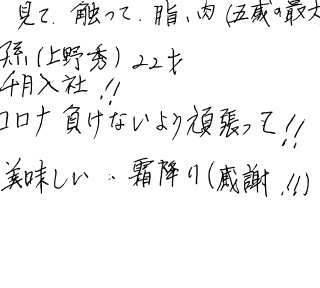 見て、触って、脂、肉(五歳の最大
孫(上野秀)22才
4月入社!!
コロナ負けないより頑張って!!
美味しい..霜降り(感謝!!)